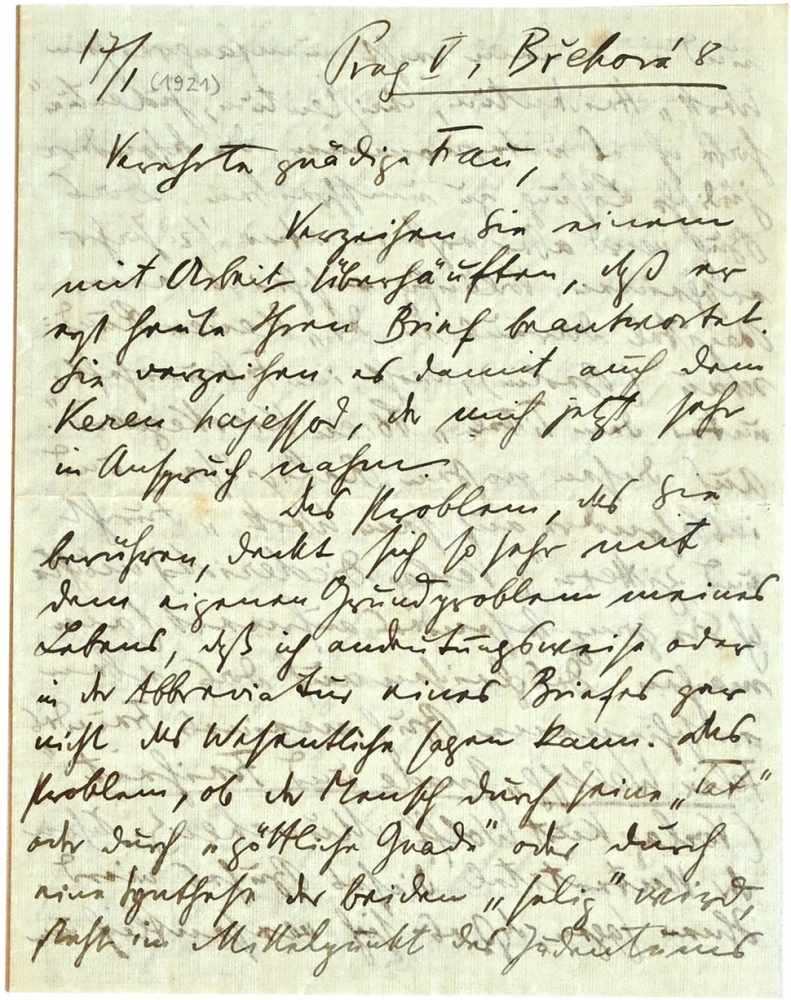 17/1 (1921)
Prag V, Břehová 8
Verehrte gnädige Frau,
Verzeihen Sie einem
mit Arbeit Überhäuften, daß er
erst heute Ihren Brief beantwortet.
Sie verzeihen es damit auch dem
Keren hajessod, der mich jetzt sehr
in Anspruch nahm
Das Problem, das Sie
berühren, deckt sich so sehr mit
dem eigenen Grundproblem meines
Lebens, daß ich andeutungsweise oder
in der Abbreviatur eines Briefes gar
nicht das Wesentliche sagen kann. Das
Problem, ob der Mensch durch seine „Tat“
oder durch „göttliche Gnade“ oder durch
eine Synthese der beiden „selig“ wird,
steht im Mittelpunkt des Judentums